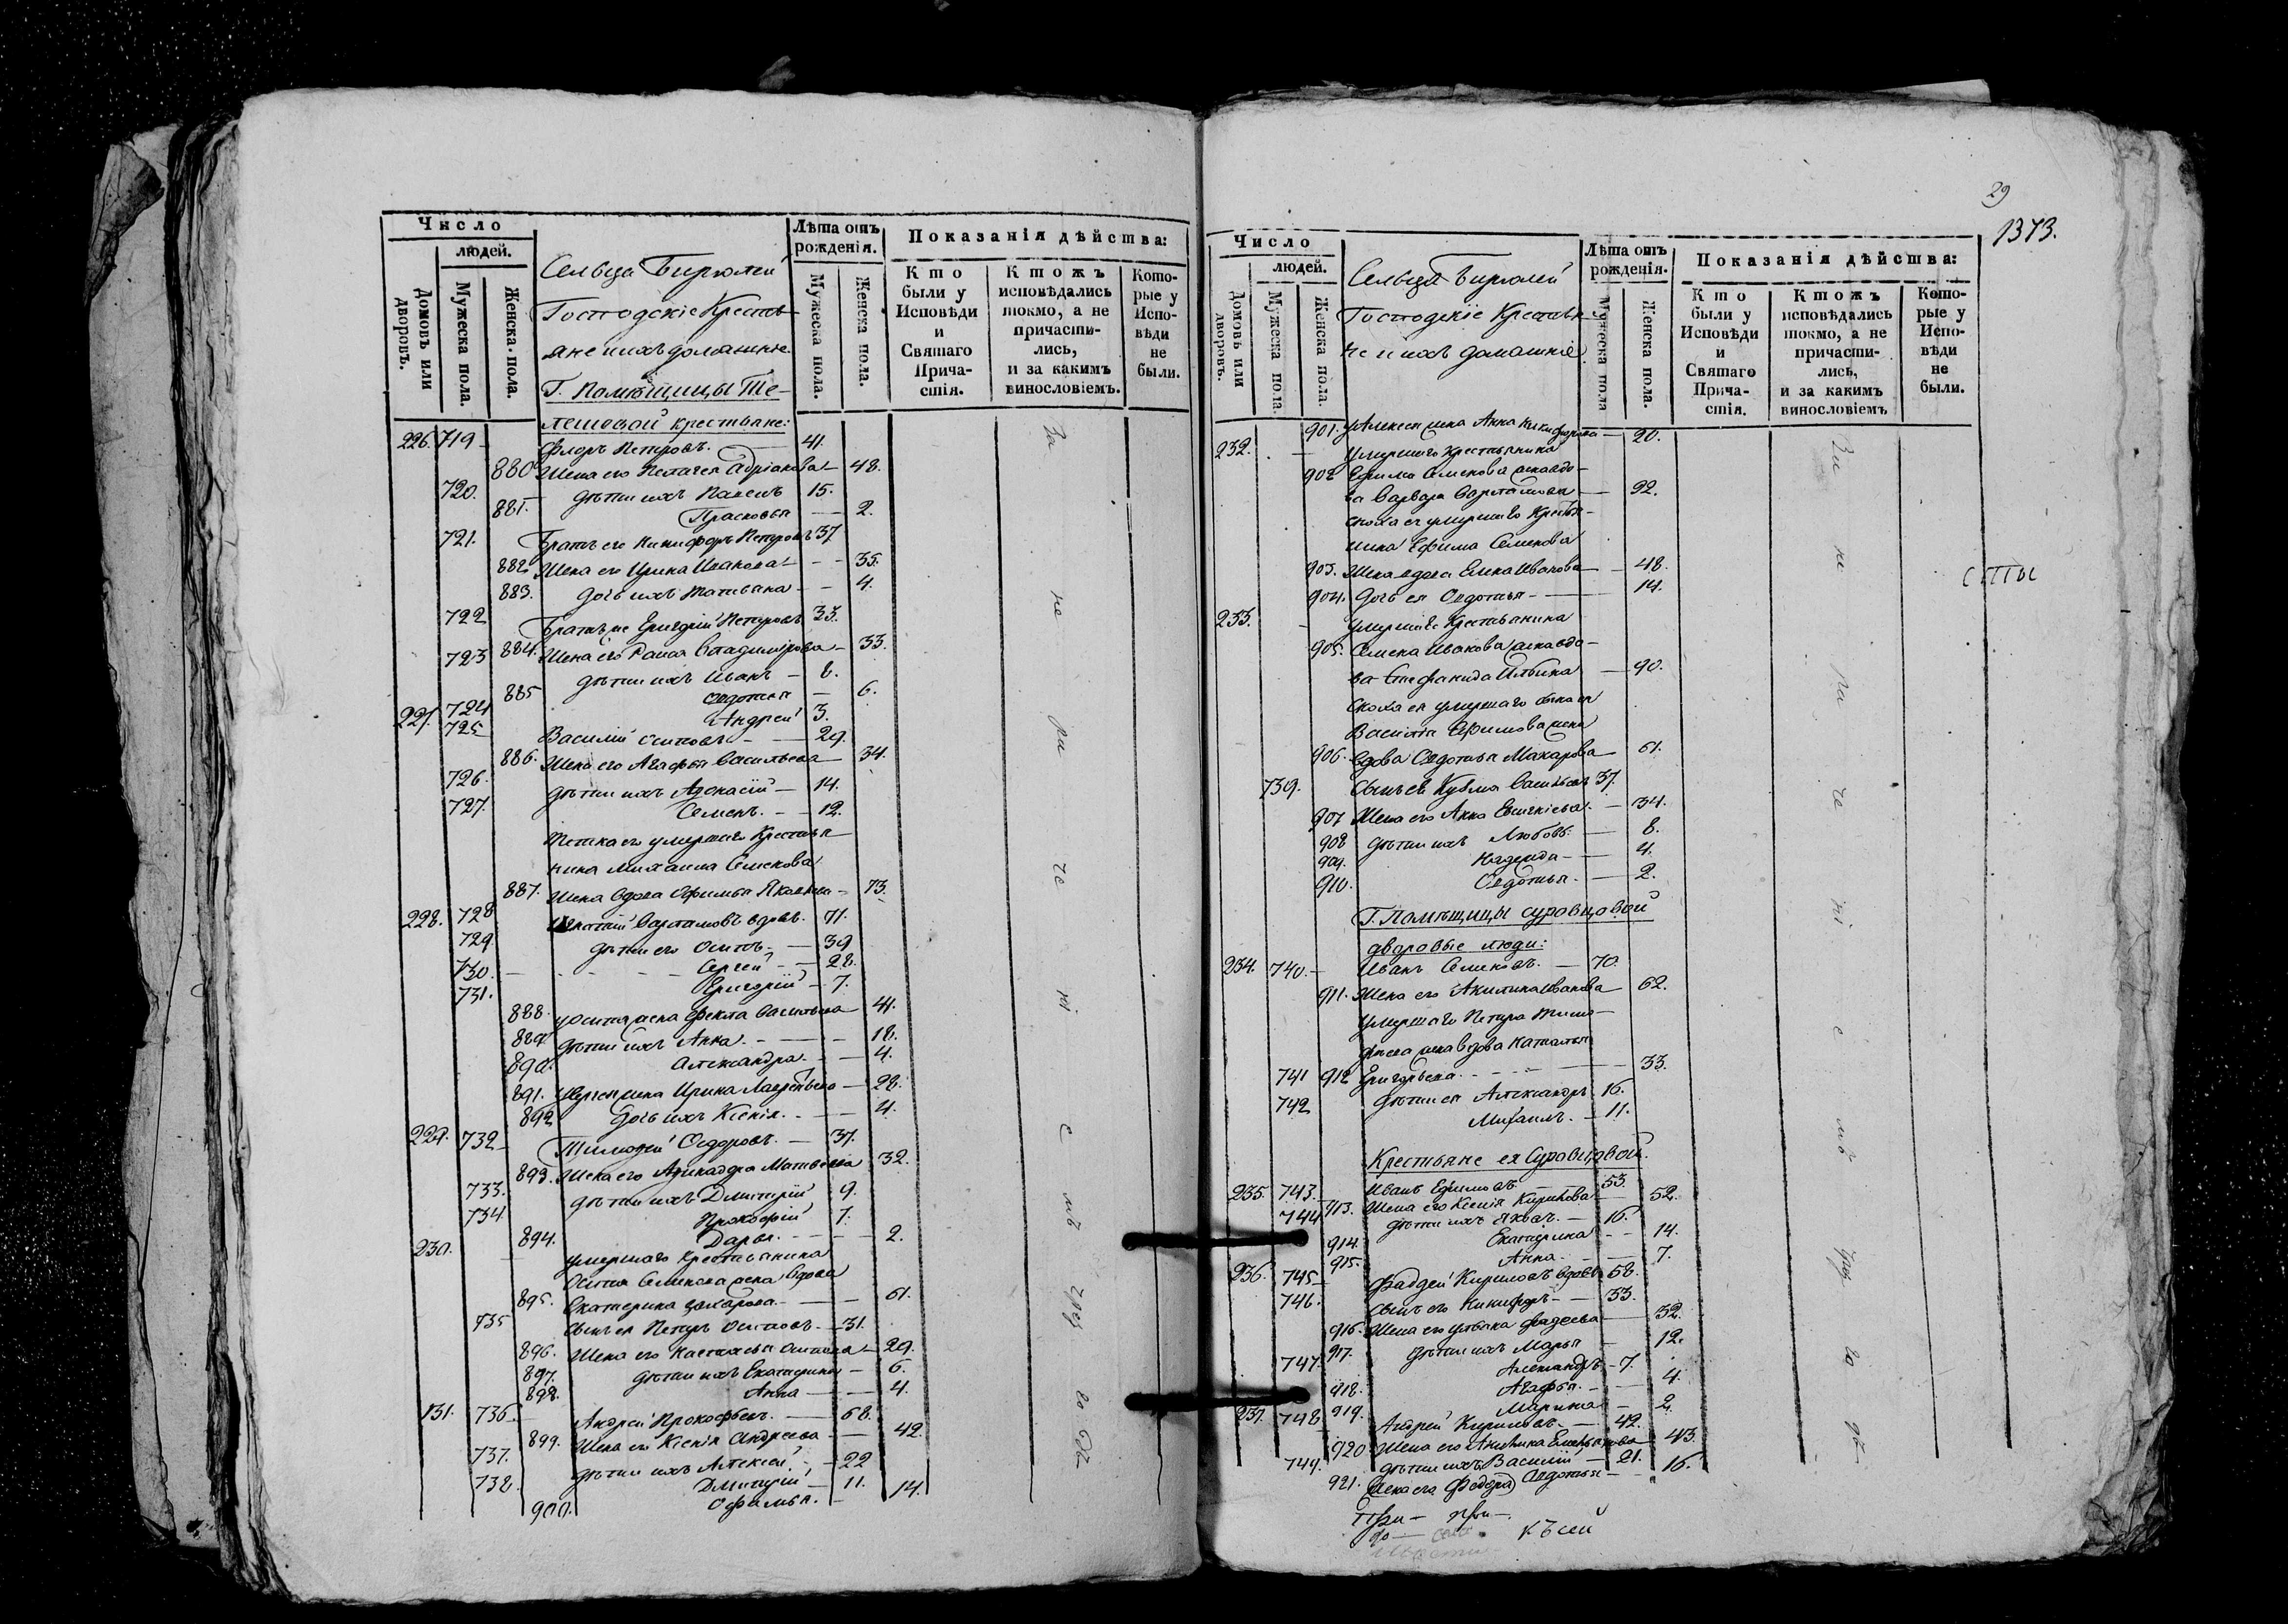 Число
людей.
Домовъ или дворовъ.
Мужеска пола.
Женска пола.
Сельца Бирюлей
Господскіе Крестья-
яне и ихъ домашніе
Г. Помѣщицы Те-
лешовой крестьяне:
Лѣта отъ рожденія.
Мужеска пола.
Женска пола.
Показанія дѣйства:
Кто были у Исповѣди и Святаго Причастія.
Ктожъ исповѣдались токмо, а не причастились, и за какимъ винословіемъ.
Которые у Исповѣди не были.
226. 719 Флоръ Петровъ. 41.
880 Жена его Пелагея Адріанова 48.
720. дѣти ихъ Павелъ 15.
881. Прасковья 2.
721. Братъ его Никифоръ Петровъ 37
882 Жена его Ирина Иванова 35.
883. дочь ихъ Татьяна 4.
722 Братъ же Григорій Петровъ 33.
884. Жена его Раиса Владимірова 33.
723 дѣти ихъ Иванъ 8.
885 Ѳедотья 6.
724 Андрей 3.
227. 725 Василій Осиповъ 29.
886. Жена его Агафья Васильева 34.
726. дѣти ихъ Аѳанасій 14.
727. Семенъ. 12.
Тетка его умершаго Крестья
нина Михаила Семенова
887. Жена вдова Офимья Яковлева 73.
228. 728 Игнатій Варламовъ вдовъ. 71.
729 дѣти его Осипъ. 39
730. Сергей 28.
731. Григорій 7.
888. у Осипа жена Фекла Васильева 41.
889 дѣти ихъ Анна. 18.
890. Александра. 4.
891. у Сергея жена Ирина Лаврентьева 28.
892 дочь ихъ Ксенія. 4.
229. 732 Тимофей Ѳедоровъ. 37.
893. Жена его Матвеева 32.
733. дѣти ихъ Дмитрій 9.
734 Прокофій 7.
894. Дарья. 2.
230. умершаго Крестьянина
Осипа Семенова жена вдова
895. Екатерина Захарова. 61.
735 сынъ ея Петръ Осиповъ. 31.
896. Жена его Настасья Антипова 29.
897. дѣти ихъ Екатерина 6.
898. Анна 4.
131. 736. Андрей Прокофьевъ. 68.
899. Жена его Ксенія Андреева 42.
737. дѣти ихъ Алексей 22
738. Дмитрій 11.
900. Офимья. 14.
За не ра че ні е мъ
29
1373.
Число
людей.
Домовъ или дворовъ.
Мужеска пола.
Женска пола.
Сельца Бирюлей
Господскіе Крестьян-
не и ихъ домашніе
Лѣта отъ рожденія.
Мужеска пола
Женска пола.
Показанія дѣйства:
Кто были у Исповѣди и Святаго Причастія.
Ктожъ исповѣдались токмо, а не причастились, и за какимъ винословіемъ
Которые у Исповѣди не были.
901. у Алексея жена Анна Никифорова 20.
232. умершаго крестьянина
902 Ефима Семенова жена вдо-
ва Варвара Варламова 92.
сноха ея умершаго Крестья-
нина Ефима Семенова
903. Жена вдова Елена Иванова 48.
904. дочь ея Ѳедотья 14.
233. умершаго Крестьянина
905. Семена Иванова жена вдо-
ва Стефанида Ильина 90.
сноха ея умершаго сына ея
Василія Ефимова жена
906. вдова Ѳедотья Макарова 61.
739. сынъ ея Кузма Васильевъ 37.
907 Жена его Анна Евгеніева. 34.
908 дѣти ихъ Любовь. 8.
909. Надежда 4.
910. Ѳедотья. 2.
Г. Помѣщицы Суровцовой
дворовые люди:
234. 740. Иванъ Семеновъ. 70.
911. Жена его Акилина Иванова 62.
умершаго Петра Тимо-
фѣева жена вдова Наталья
912 Григорьева. 33.
741 дѣти ея Александръ 16.
742 Михаилъ. 11.
Крестьяне ея Суровцовой.
235. 743. Иванъ Ефимовъ 53.
913. Жена его Ксенія Кирилова 52.
744 дѣти ихъ Яковъ. 16.
914. Екатерина 14.
915. Анна. 7.
236. 745 Фаддей Кириловъ вдовъ 58.
746. сынъ его Никифоръ. 33.
916. Жена его Ульяна Фадеева 32.
917. дѣти ихъ Марья 12.
747. Александръ 7.
918. Агафья. 4.
919. Марина 2.
237. 748 Андрей Кириловъ. 42.
920 Жена его Акилина 43.
749. дѣти ихъ Василій 21.
921. Ѳедотья 16.
За не ра че ні е мъ
къ сей